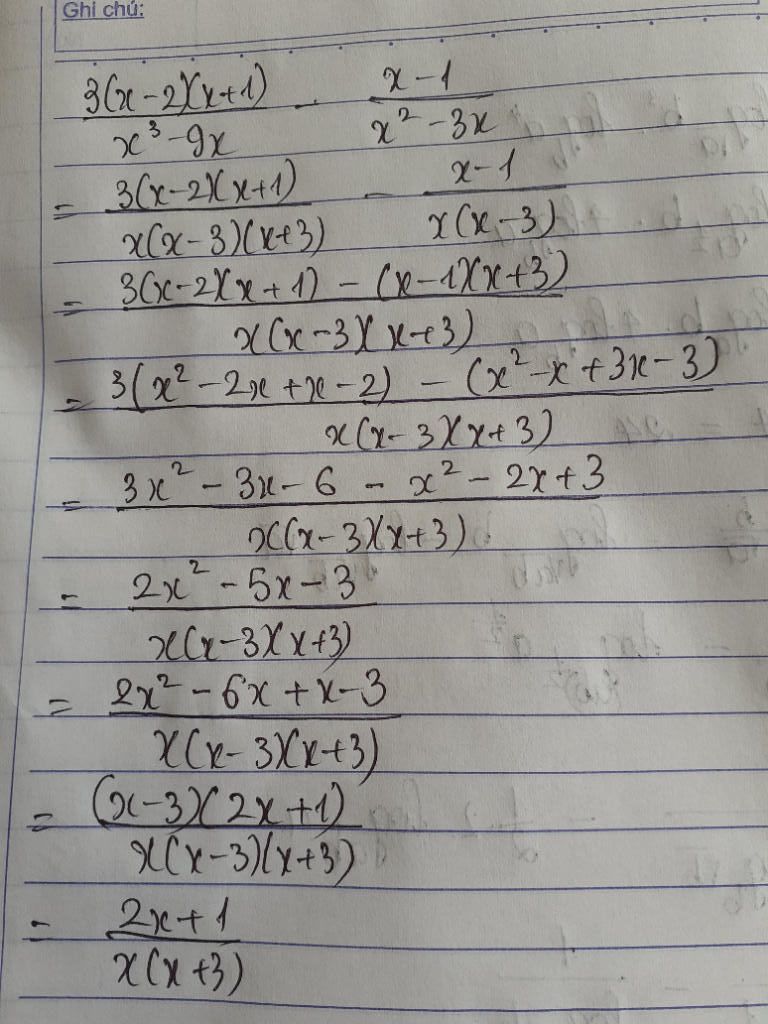 Ghi chú:
3(x-2)(x+1)/x³-9x - x-1/x²-3x
= 3(x-2)(x+1)/x(x-3)(x+3) - x-1/x(x-3)
= 3(x-2)(x+1) - (x-1)(x+3)/x(x-3)(x+3)
= 3(x²-2x+x-2) - (x²-x+3x-3)/x(x-3)(x+3)
= 3x²-3x-6-x²-2x+3/x(x-3)(x+3)
= 2x²-5x-3/x(x-3)(x+3)
= 2x²-6x+x-3/x(x-3)(x+3)
= (x-3)(2x+1)/x(x-3)(x+3)
= 2x+1/x(x+3)